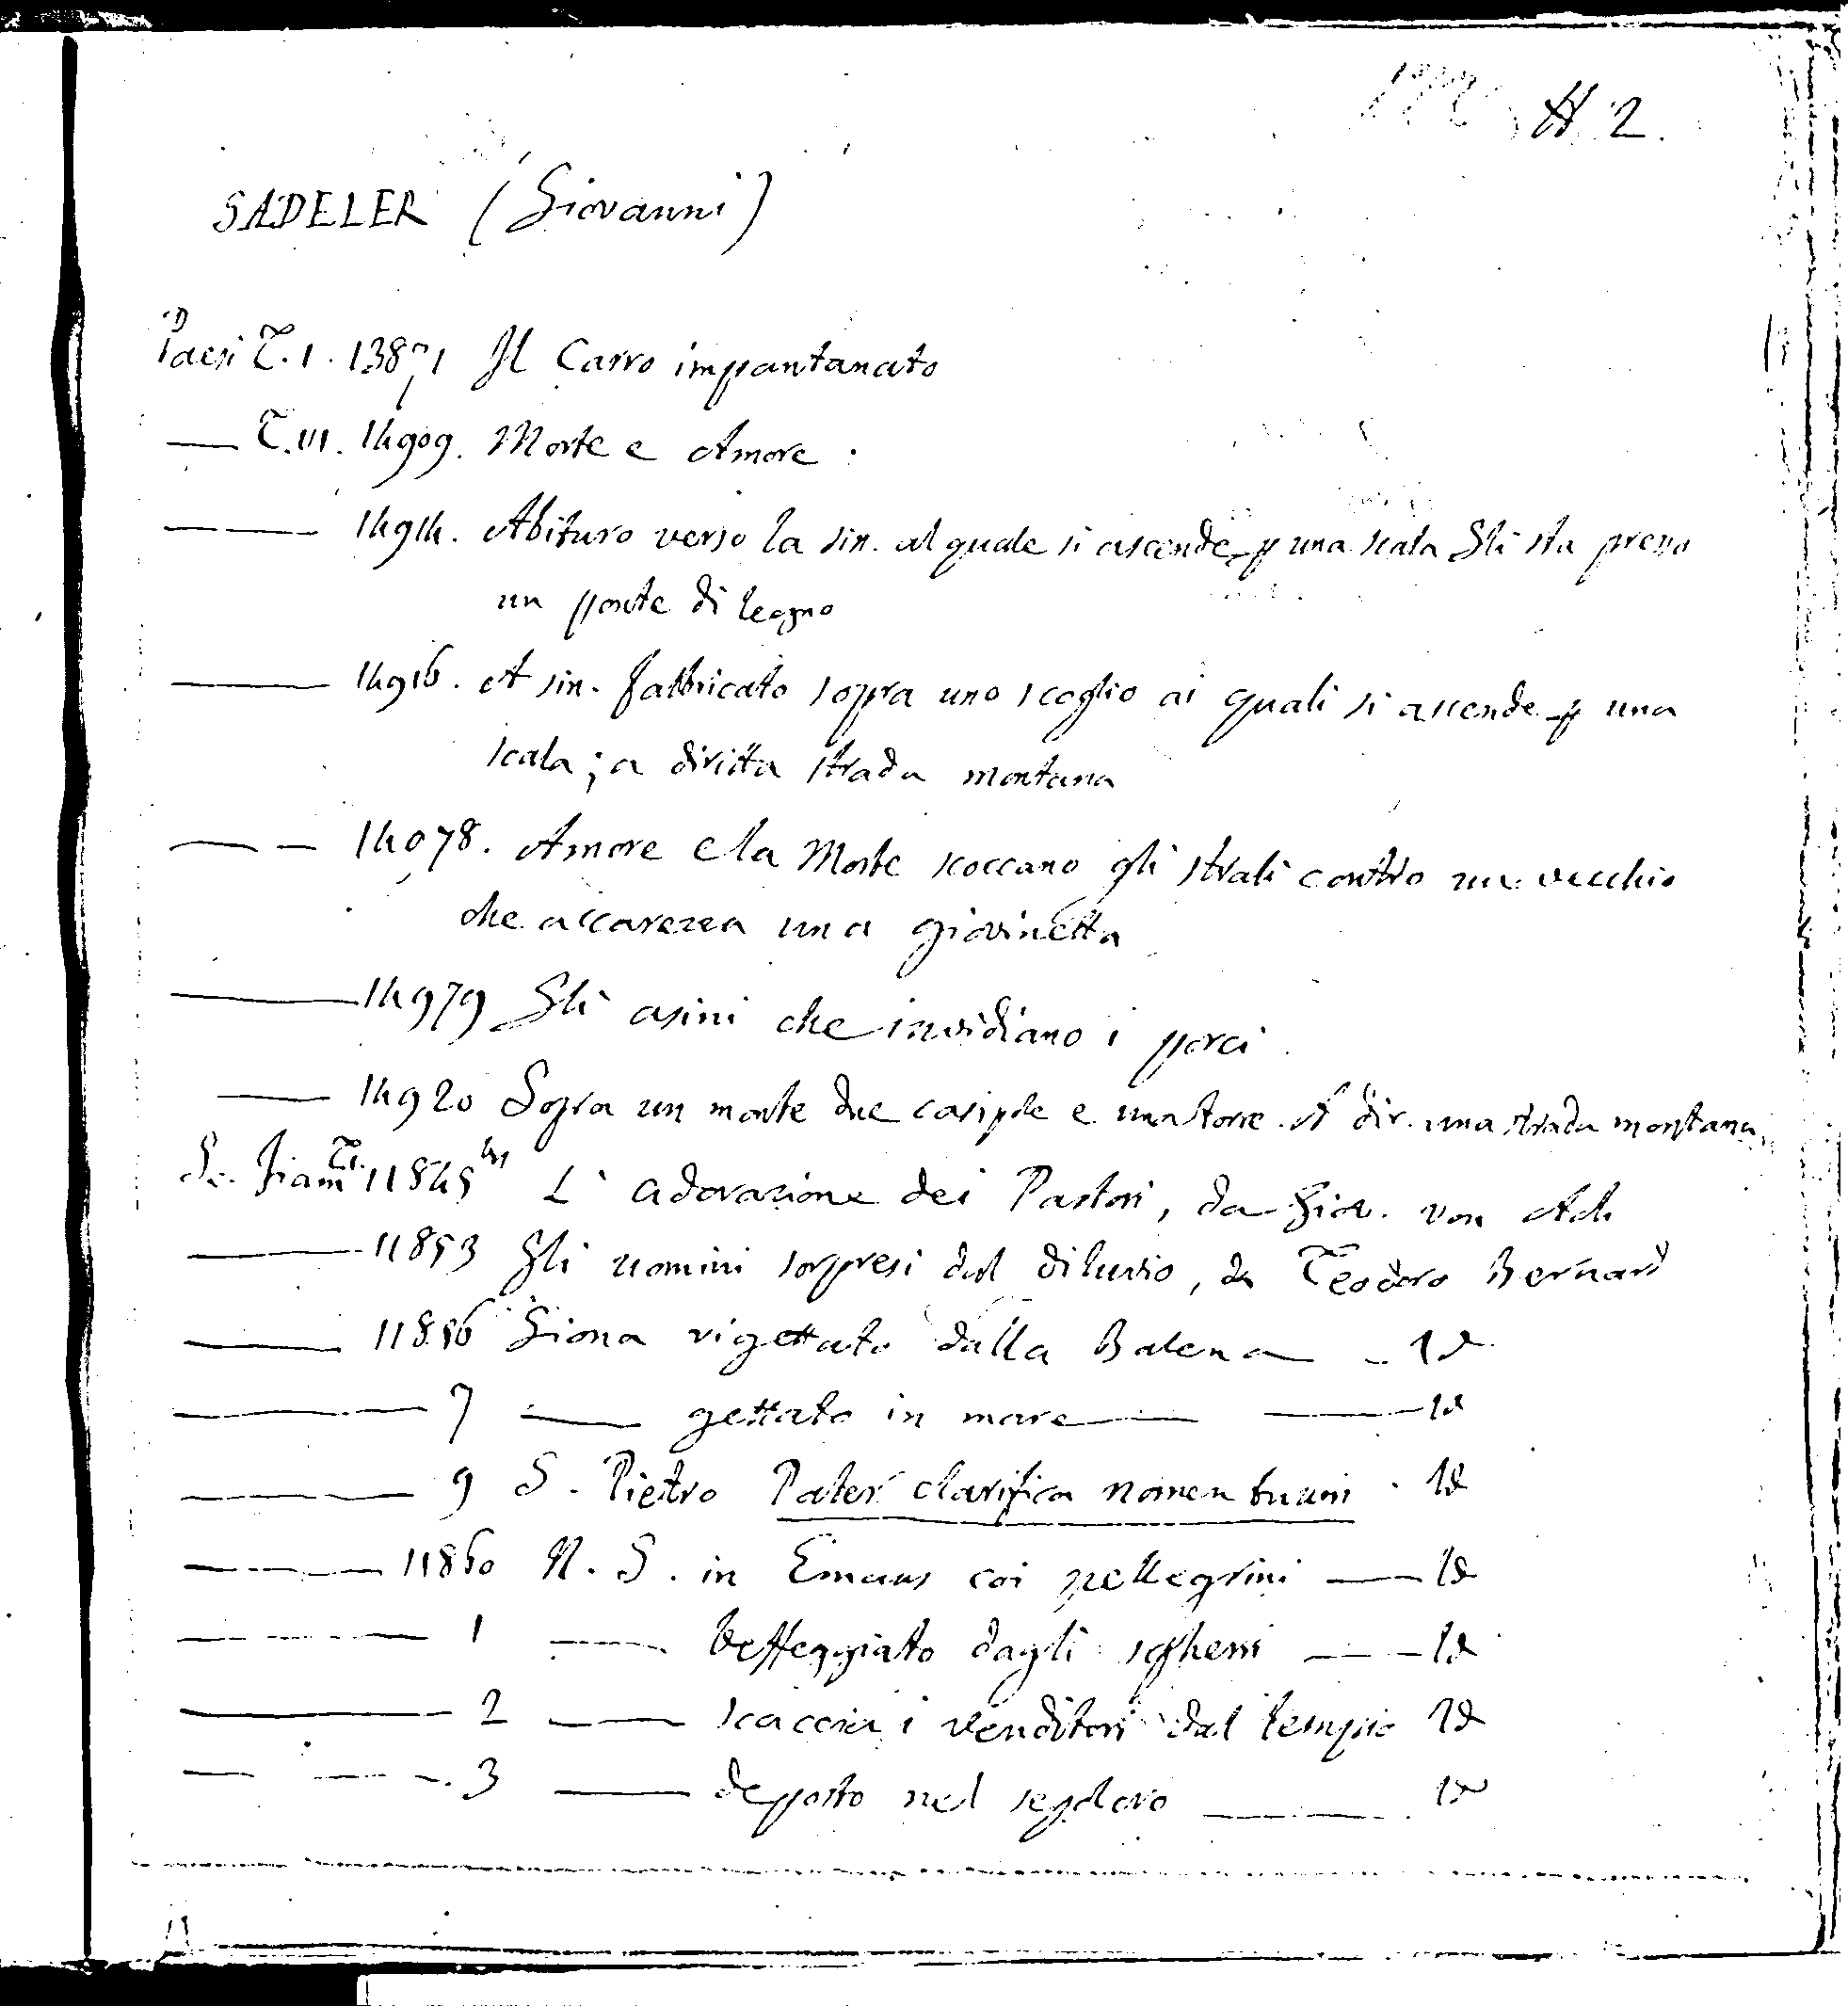 # 2.
SADELER (Giovanni)
Paesi T. 1. 13871 Il Carro impantanato
— T. III. 14909. Morte e Amore.
— — 14914. Abituro verso la sin. al quale si ascende p una scala Gli sta presso
un ponte di legno
— 14916. A sin. fabbricato sopra uno scoglio ai quali si ascende p una
scala; a diritta strada montana
— — 14078. Amore e la Morte scoccano gli strali contro un vecchio
che accarezza una giovinetta
— 14979 Gli asini che invidiano i porci.
— 14920 Sopra un monte due casipole e una torre. A dir. una strada montana
Sc. Fiam. T.I. 11845 L'adorazione dei Pastori, da Giov. von Ach
— 11853 Gli uomini sorpresi dal diluvio, da Teodoro Bernard
— 11856 Giona rigettato dalla Balena — Id
— 7 — gettato in mare — — Id
— 9 S. Pietro Pater clarifica nomen tuum. Id
— 11860 N. S. in Emaus coi pellegrini — Id
— 1 — beffeggiato dagli sgherri — Id
— 2 — scaccia i venditori dal tempio Id
— 3 — deposto nel sepolcro — Id